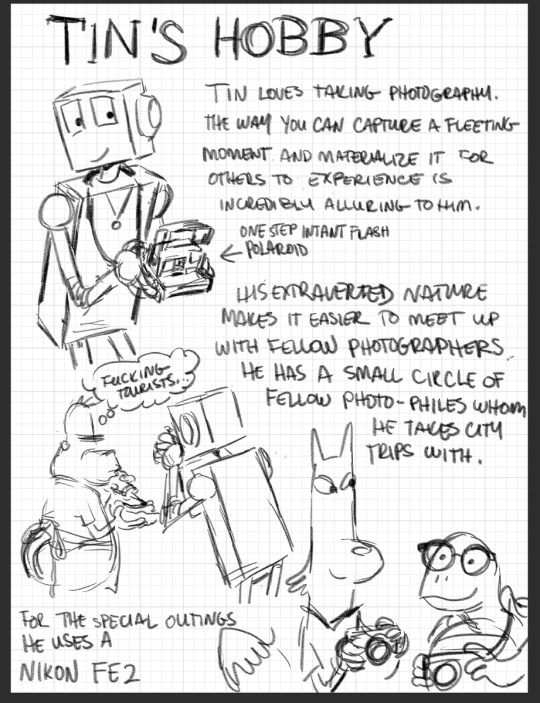 TIN'S HOBBY
TIN LOVES TAKING PHOTOGRAPHY.
THE WAY YOU CAN CAPTURE A FLEETING
MOMENT AND MATERIALIZE IT FOR
OTHERS TO EXPERIENCE IS
INCREDIBLY ALLURING TO HIM.
ONE STEP INTANT FLASH
← POLAROID
HIS EXTRAVERTED NATURE
MAKES IT EASIER TO MEET UP
WITH FELLOW PHOTOGRAPHERS.
HE HAS A SMALL CIRCLE OF
FELLOW PHOTO-PHILES WHOM
HE TAKES CITY
TRIPS WITH.
FUCKING
TOURISTS...
FOR THE SPECIAL OUTINGS
HE USES A
NIKON FE2